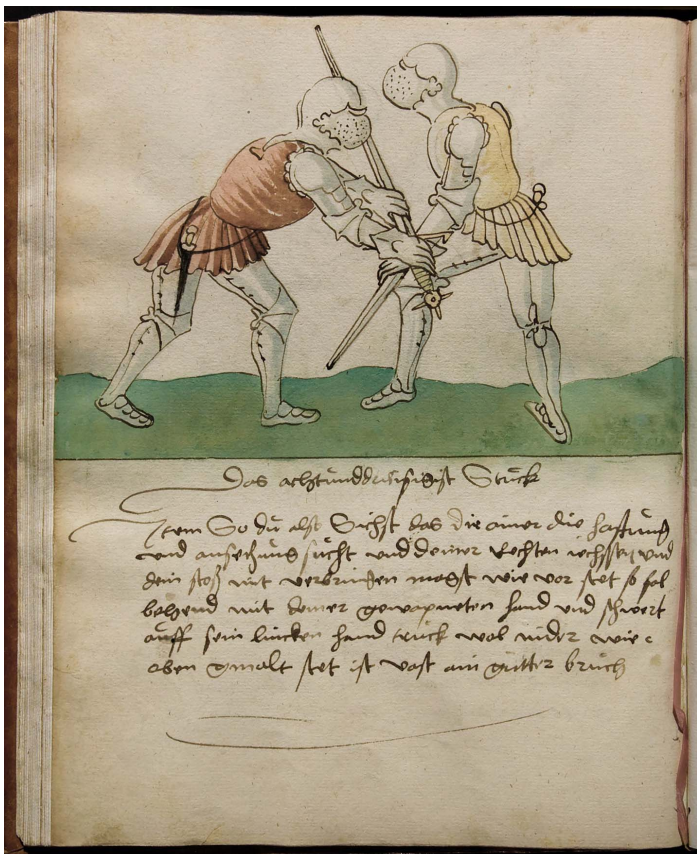 Das achtunddreissigist Stuck
Item So du also Sichst das dir ainer die hafftung
und ansetzung sucht und deiner Rechten iechssen und
dein stoß nit verbringen magst wie vor stet so fal
behend mit deiner gewapneten hand und schwert
auff sein lincken hand truck wol nider wie
oben gmalt stet ist vast ain gutter bruch